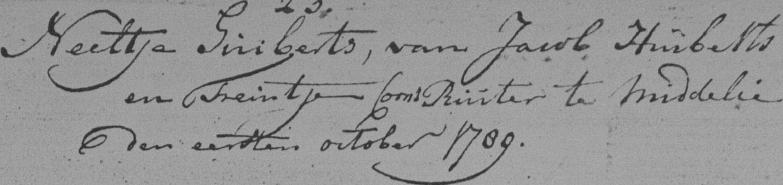 23.
Neeltje Guiberts, van Jacob Huiberts
en Treintje Corns Ruiter te Middelie
den eersten october 1789.